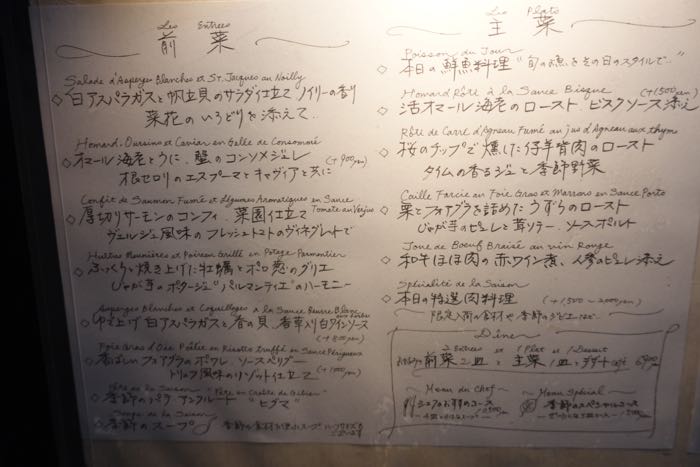 Les Entrées
前菜
Salade d'Asperges Blanches et St. Jacques au Noilly
◇白アスパラガスと帆立貝のサラダ仕立て ノイリーの香り
菜花のいろどりを添えて..
Homard. Oursins et Caviar en Gelée de Consommé
◇オマール海老とうに、蟹のコンソメジュレ
根セロリのエスプーマとキャヴィアと共に
(+900yen)
Confit de Saumon Fumé et Légumes Aromatiques en Sauce
Tomate au Verjus
◇厚切りサーモンのコンフィ、菜園仕立て
ヴェルジュ風味のフレッシュトマトのヴィネグレットで
Huîtres Meunières et Poireau Grillé en Potage Parmentier
◇ふっくら焼き上げた牡蠣とポロ葱のグリエ
じゃが芋のポタージュ"パルマンティエ"のハーモニー
Asperges Blanches et Coquillages à la Sauce Beurre Blanc
◇ゆで上げ白アスパラガスと春の貝、香草入り白ワインソース
(+800yen)
Foie Gras d'Oie Poêlé en Risotto truffé en Sauce Périgueux
◇香ばしいフォアグラのポワレ ソースペリグー
トリュフ風味のリゾット仕立て (+1000yen)
◇季節のパテアンクルート "ヒグマ"
Soupe de la Saison
◇季節のスープ
Les Plats
主菜
Poisson du Jour
◇本日の鮮魚料理 "旬のお魚をその日のスタイルで.."
Homard Rôti à la Sauce Bisque (+1500yen)
◇活オマール海老のロースト ビスクソース添え
Rôti de Carré d'Agneau Fumé au jus d'Agneau aux thyme
◇桜のチップで燻した仔羊背肉のロースト
タイムの香るジュと季節野菜
Caille Farcie au Foie Gras et Marrons en Sauce Porto
◇栗とフォアグラを詰めたうずらのロースト
じゃが芋のピュレと茸ソテー、ソースポルト
Joue de Bœuf Braisé au vin Rouge
◇和牛ほほ肉の赤ワイン煮、人参のピュレ添え
Spécialité de la Saison
◇本日の特選肉料理 (+1500〜2000yen)
〜限定入荷の食材や季節のジビエなど〜
Dîner
2 Entrées et 1 Plat et 1 Dessert
前菜2皿と主菜1皿とデザート
〜Menu du Chef〜
シェフのお任せコース
〜Menu Spécial〜
季節のスペシャルコース